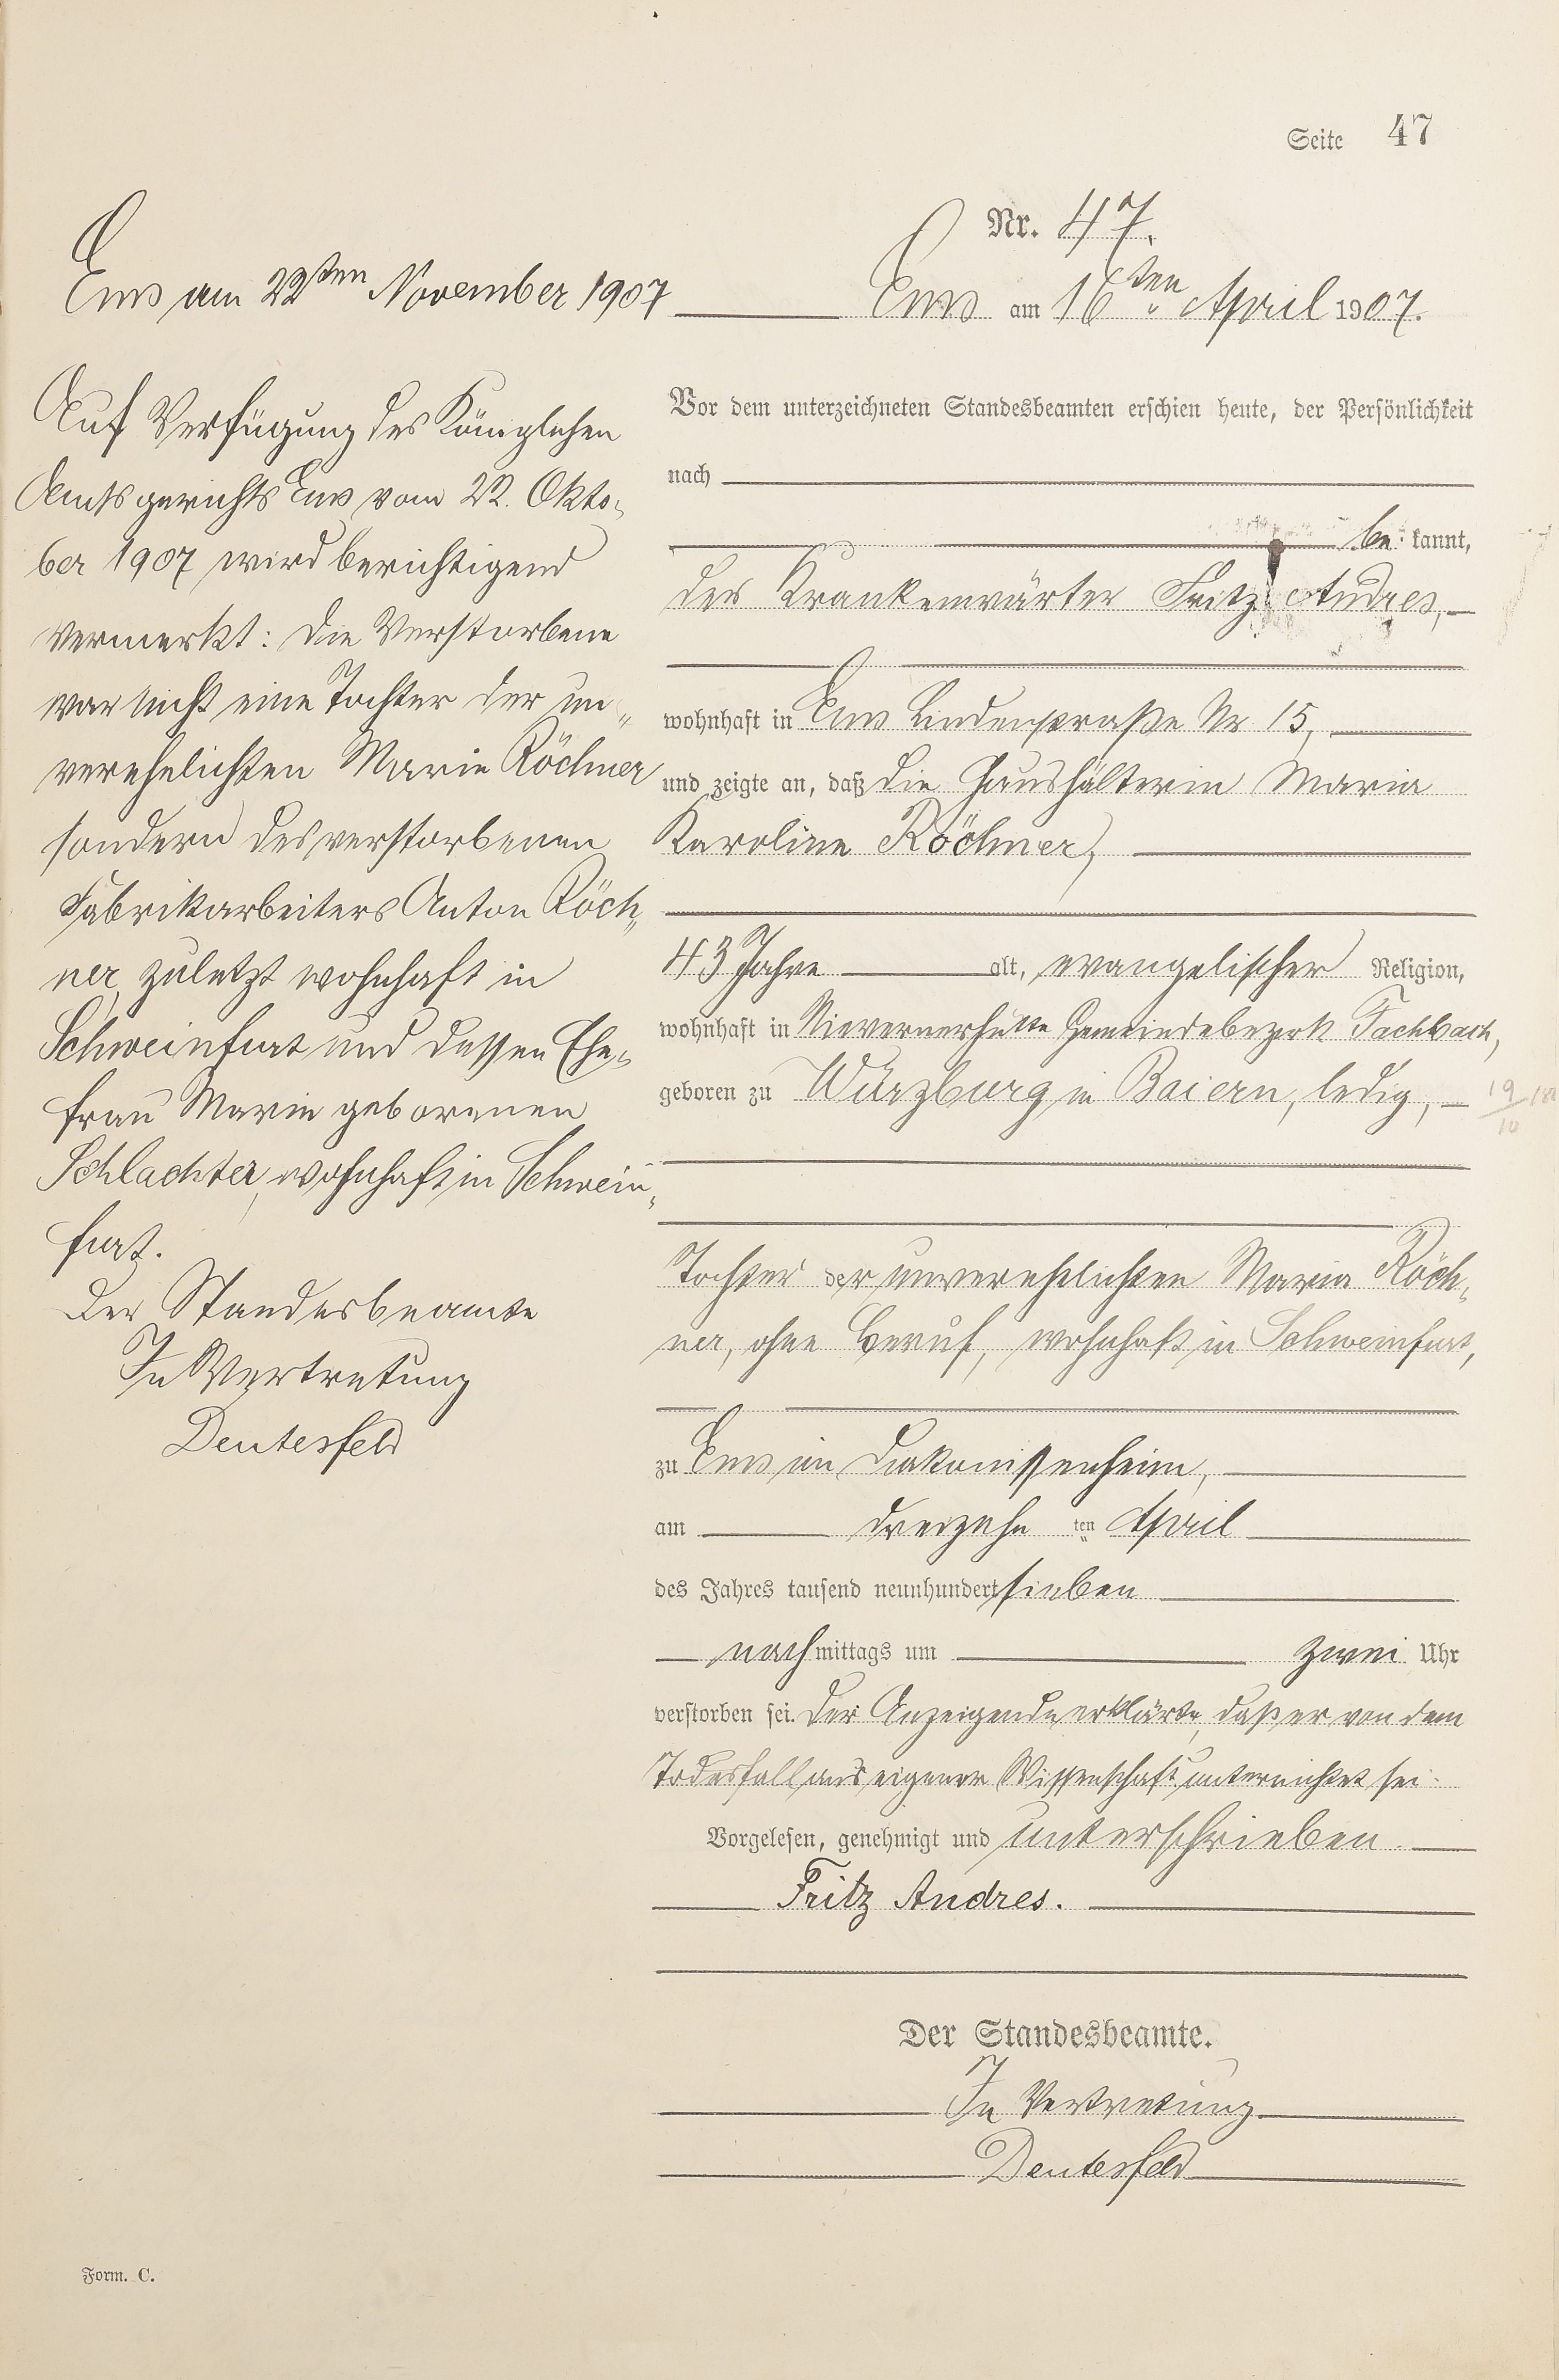 Seite 47
Nr. 47.
Ems am 16ten April 1907.
Vor dem unterzeichneten Standesbeamten erschien heute, der Persönlichkeit
nach
be kannt,
der Krankenwärter Fritz Andres,
wohnhaft in Ems Lindenstraße Nr. 15,
und zeigte an, daß die Haushälterin Maria
Karoline Röchner,
43 Jahre alt, evangelischer Religion,
wohnhaft in Nievernerhütte Gemeindebezirk Fachbach,
geboren zu Würzburg in Baiern, ledig,
Tochter der unverehelichten Maria Röch-
ner, ohne Beruf, wohnhaft in Schweinfurt,
zu Ems im Diakonissenheim,
am dreizehn ten April
des Jahres tausend neunhundert sieben
nachmittags um zwei Uhr
verstorben sei. Der Anzeigende erklärte, daß er von dem
Todesfall aus eigener Wissenschaft unterrichtet sei.
Vorgelesen, genehmigt und unterschrieben.
Fritz Andres.
Der Standesbeamte.
In Vertretung
Deutesfeld
Ems am 22ten November 1907
Auf Verfügung des Königlichen
Amtsgerichts Ems vom 22. Okto-
ber 1907 wird berichtigend
vermerkt: Die Verstorbene
war nicht eine Tochter der un-
verehelichten Marie Röchner
sondern des verstorbenen
Fabrikarbeiters Anton Röch-
ner, zuletzt wohnhaft in
Schweinfurt und dessen Ehe-
frau Marie geborenen
Schlachter, wohnhaft in Schwein-
furt.
Der Standesbeamte
In Vertretung
Deutesfeld
Form. C.